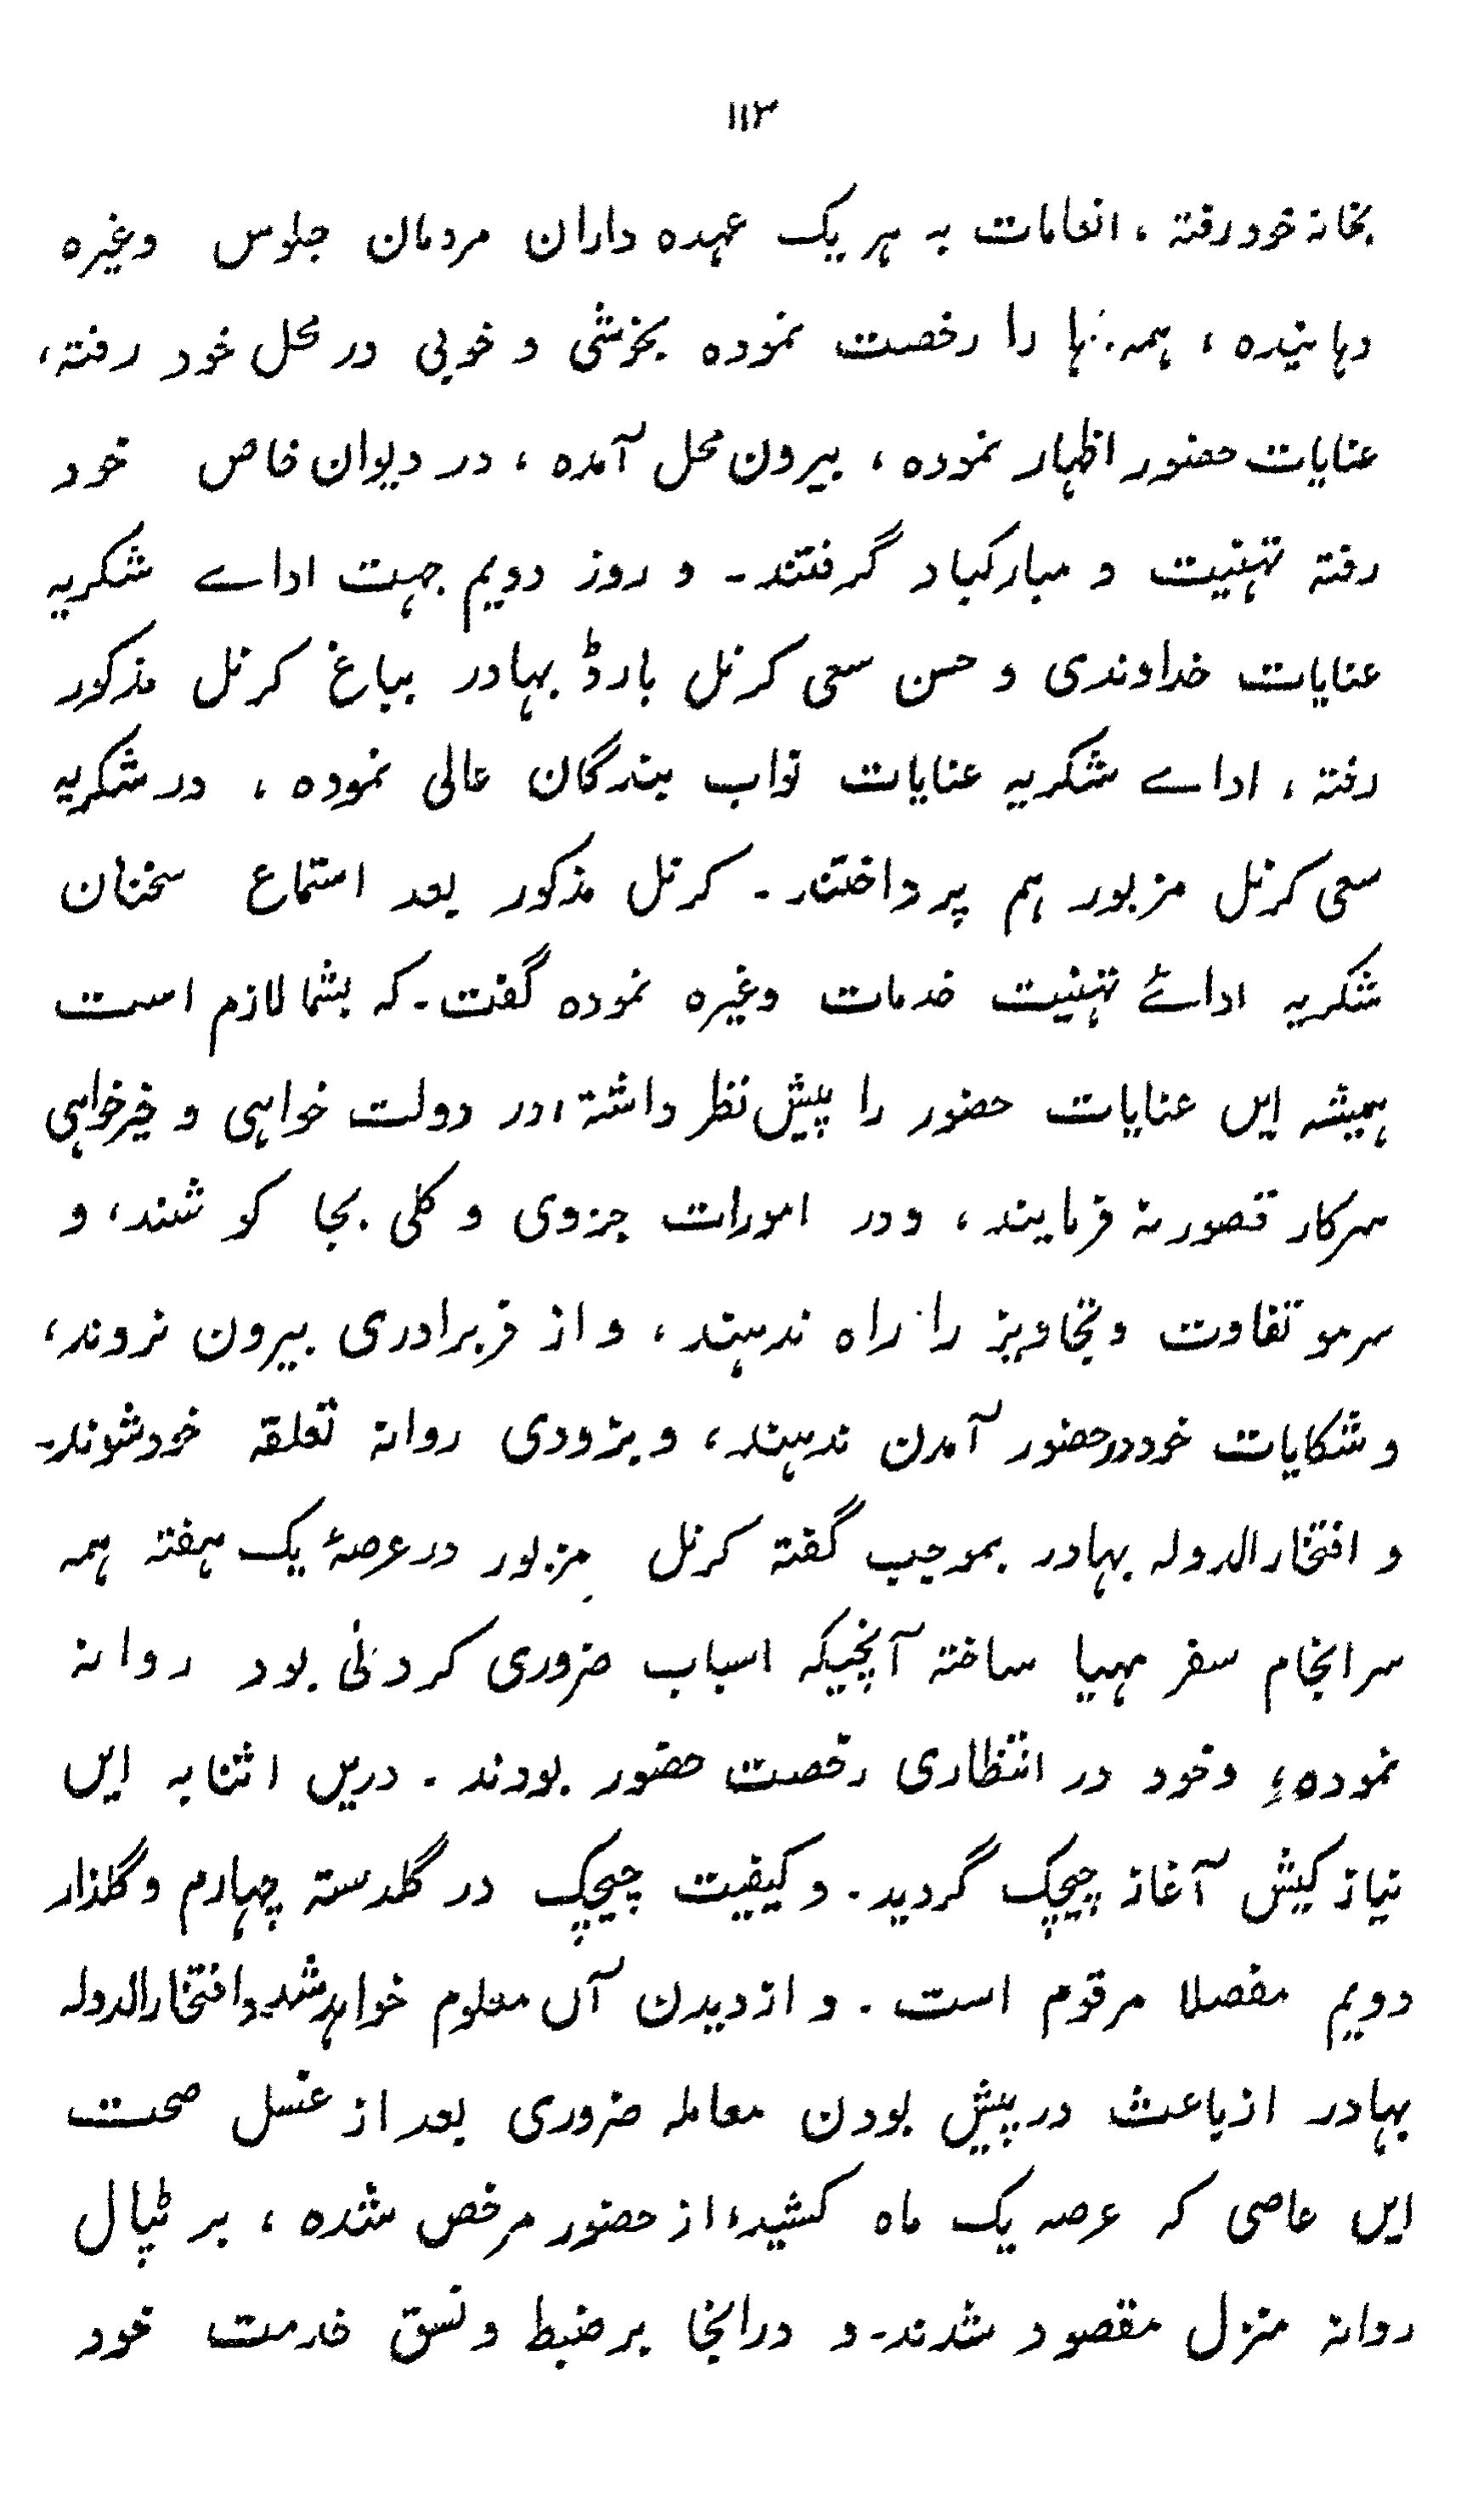 ۱۱۲
بخانہ خود رفتہ، انعامات بہ ہر یک عہدہ داران مردمان جلوس وغیرہ
دہانیدہ، ہمہ را رخصت نمودہ بخوشی و خوبی در محل خود رفتہ،
عنایات حضور اظہار نمودہ، بیرون محل آمدہ، در دیوان خاص خود
رفتہ تہنیت و مبارکباد گرفتند۔ و روز دویم جہت اداے شکریہ
عنایات خداوندی و حسن سعی کرنل بارڈ بہادر بباغ کرنل مذکور
رفتہ، اداے شکریہ عنایات نواب بندگان عالی نمودہ، در شکریہ
سعی کرنل مزبور ہم پرداختند۔ کرنل مذکور بعد استماع سخنان
شکریہ ادائے تہنیت خدمات وغیرہ نمودہ گفت۔ کہ بشما لازم است
ہمیشہ ایں عنایات حضور را پیش نظر داشتہ، در دولت خواہی و خیرخواہی
سرکار قصور نہ فرمایند، و در امورات جزوی و کلی بجا کوشند، و
سرمو تفاوت و تجاویز را راہ ندہند، و از فر برادری بیرون نروند،
و شکایات خود در حضور آمدن ندہند، و بزودی روانہ تعلقہ خود شوند۔
و افتخار الدولہ بہادر بموجب گفتہ کرنل مزبور در عرصۂ یک ہفتہ ہمہ
سرانجام سفر مہیا ساختہ آنچیکہ اسباب ضروری کردنی بود روانہ
نمودہ، وخود در انتظاری رخصت حضور بودند۔ دریں اثنا بہ ایں
نیاز کیش آغاز چیچک گردید۔ و کیفیت چیچک در گلدستہ چہارم و گلذار
دویم مفصلا مرقوم است۔ و از دیدن آں معلوم خواہد شد۔ و افتخار الدولہ
بہادر از باعث درپیش بودن معاملہ ضروری بعد از غسل صحت
ایں عاصی کہ عرصہ یک ماہ کشید، از حضور مرخص شدہ، بر ٹپال
روانہ منزل مقصود شدند۔ و درانجا بر ضبط و نسق خدمت خود